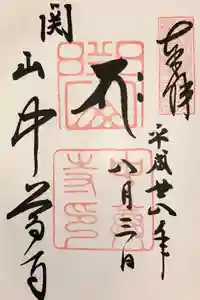 奉拝
平成廿八年
八月三日
関山中尊寺